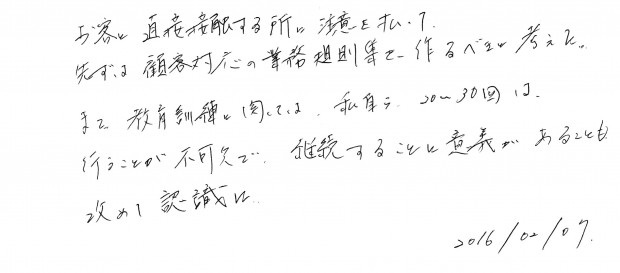 お客に直接接触する所に注意を払って、
先ずは顧客対応の業務規則集を作るべきと考えた。
また教育訓練に関しては、私自ら、20〜30回は、
行うことが不可欠で、継続することに意義があることも
改めて認識した。
2016/02/07.